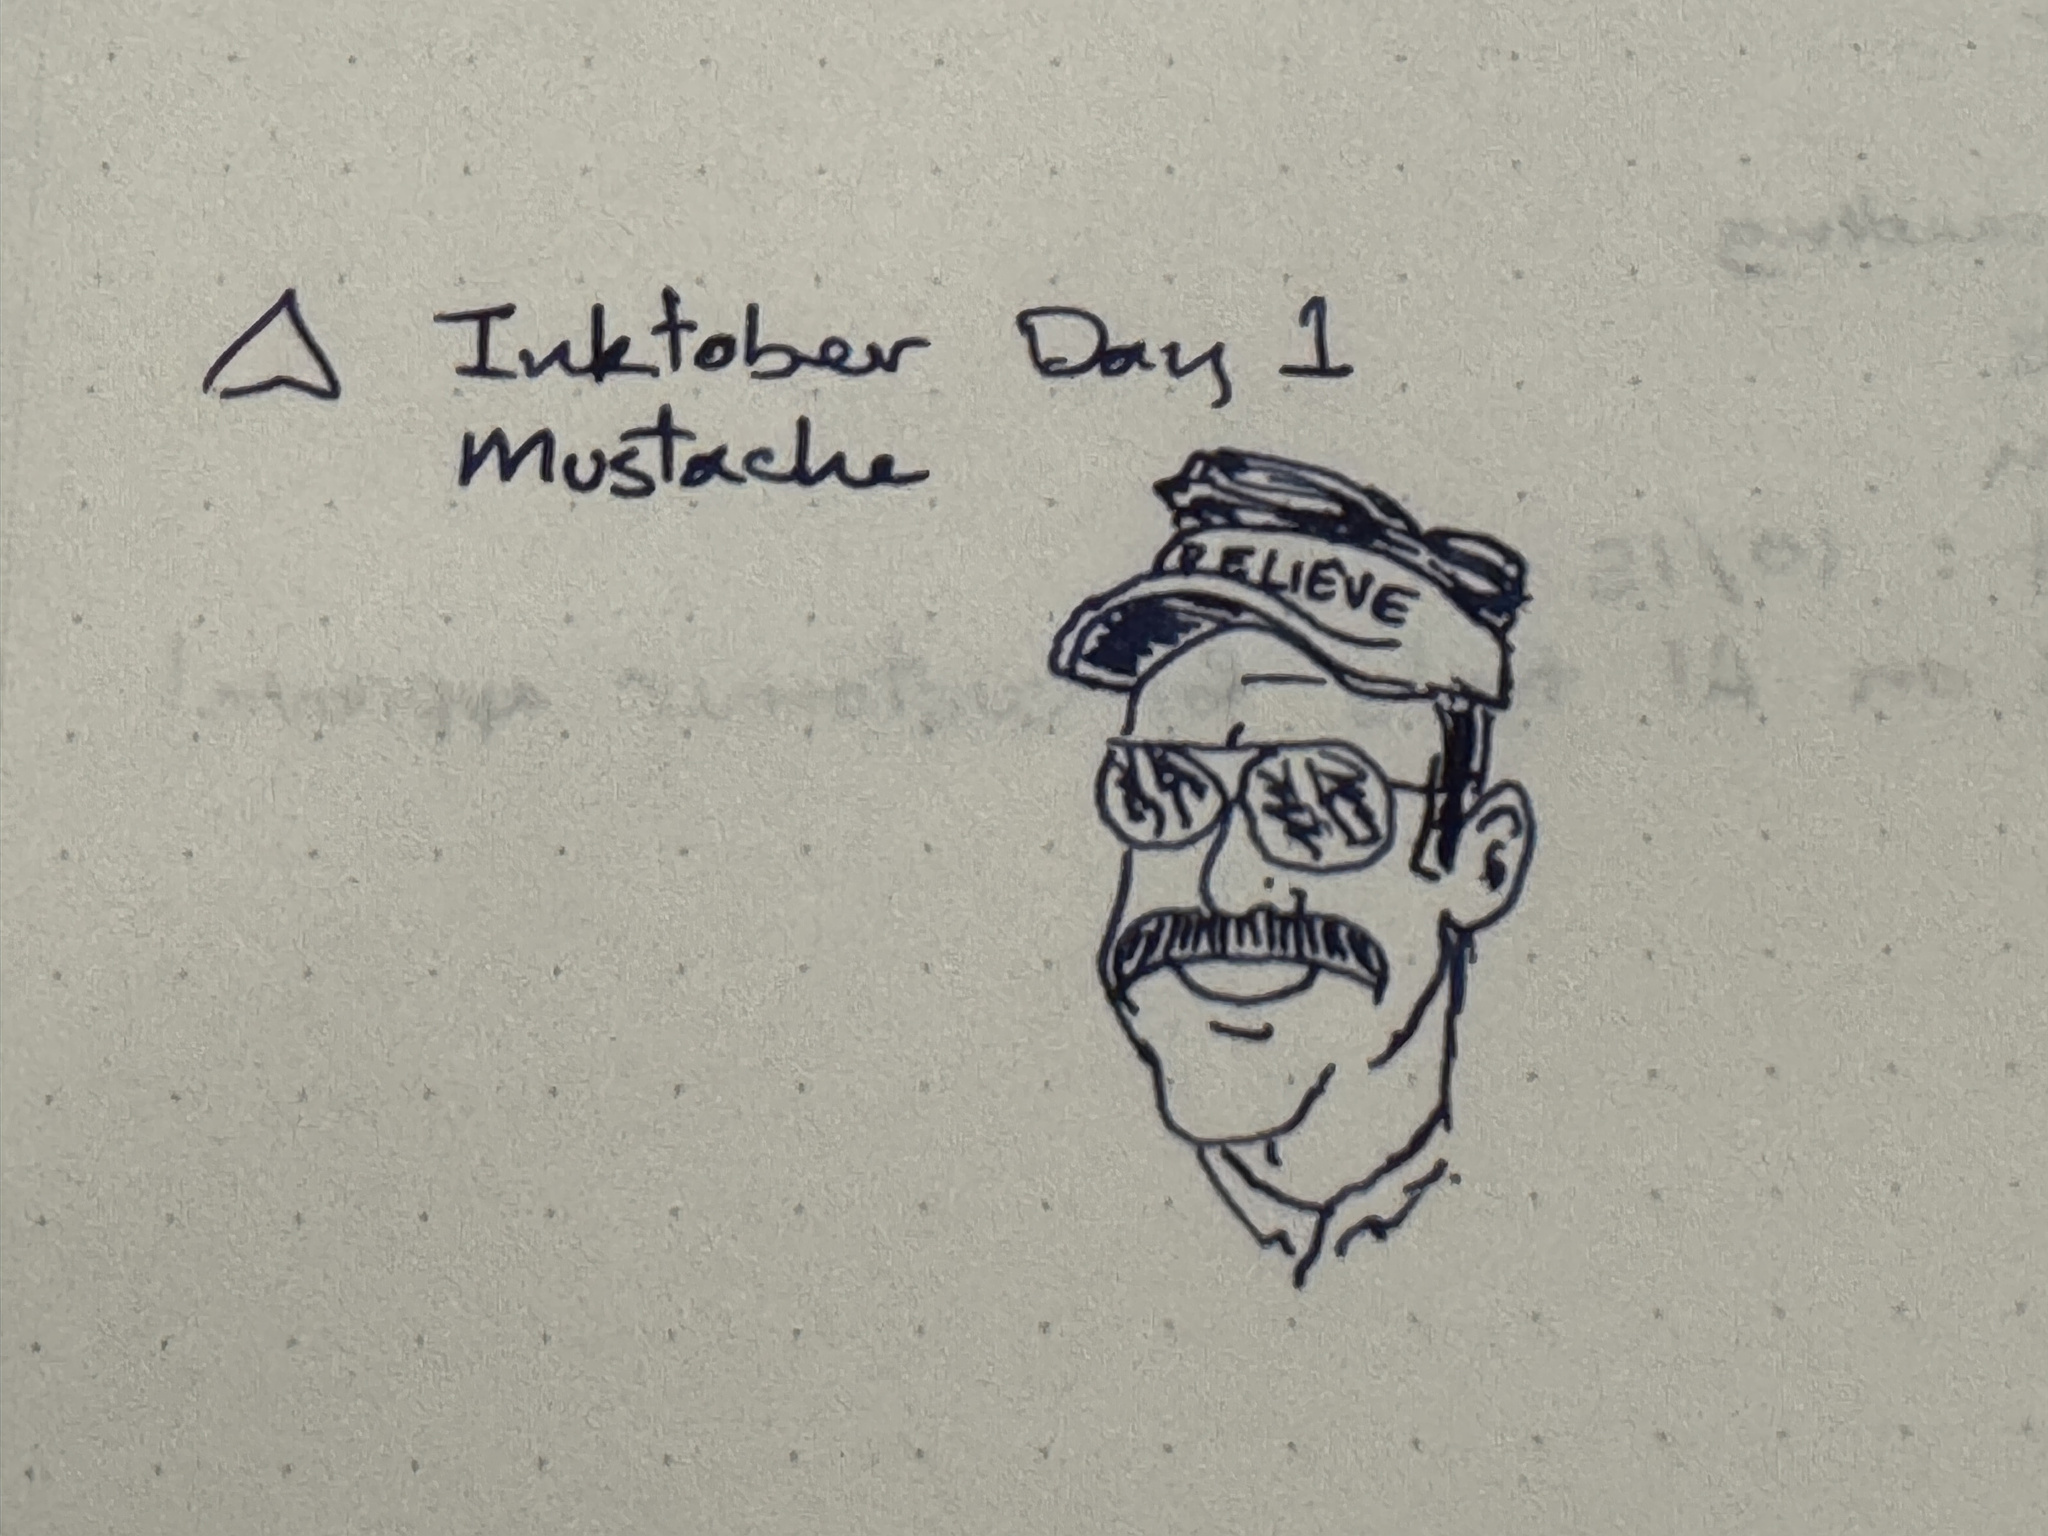 Inktober Day 1
Mustache
BELIEVE
10/15